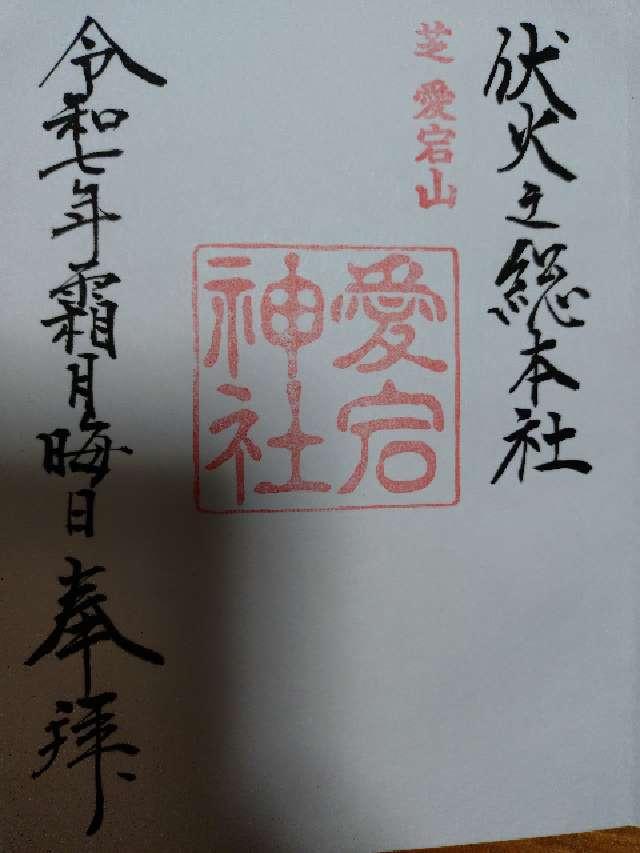 伏火之総本社
芝 愛宕山
愛宕
神社
令和七年霜月晦日 奉拝